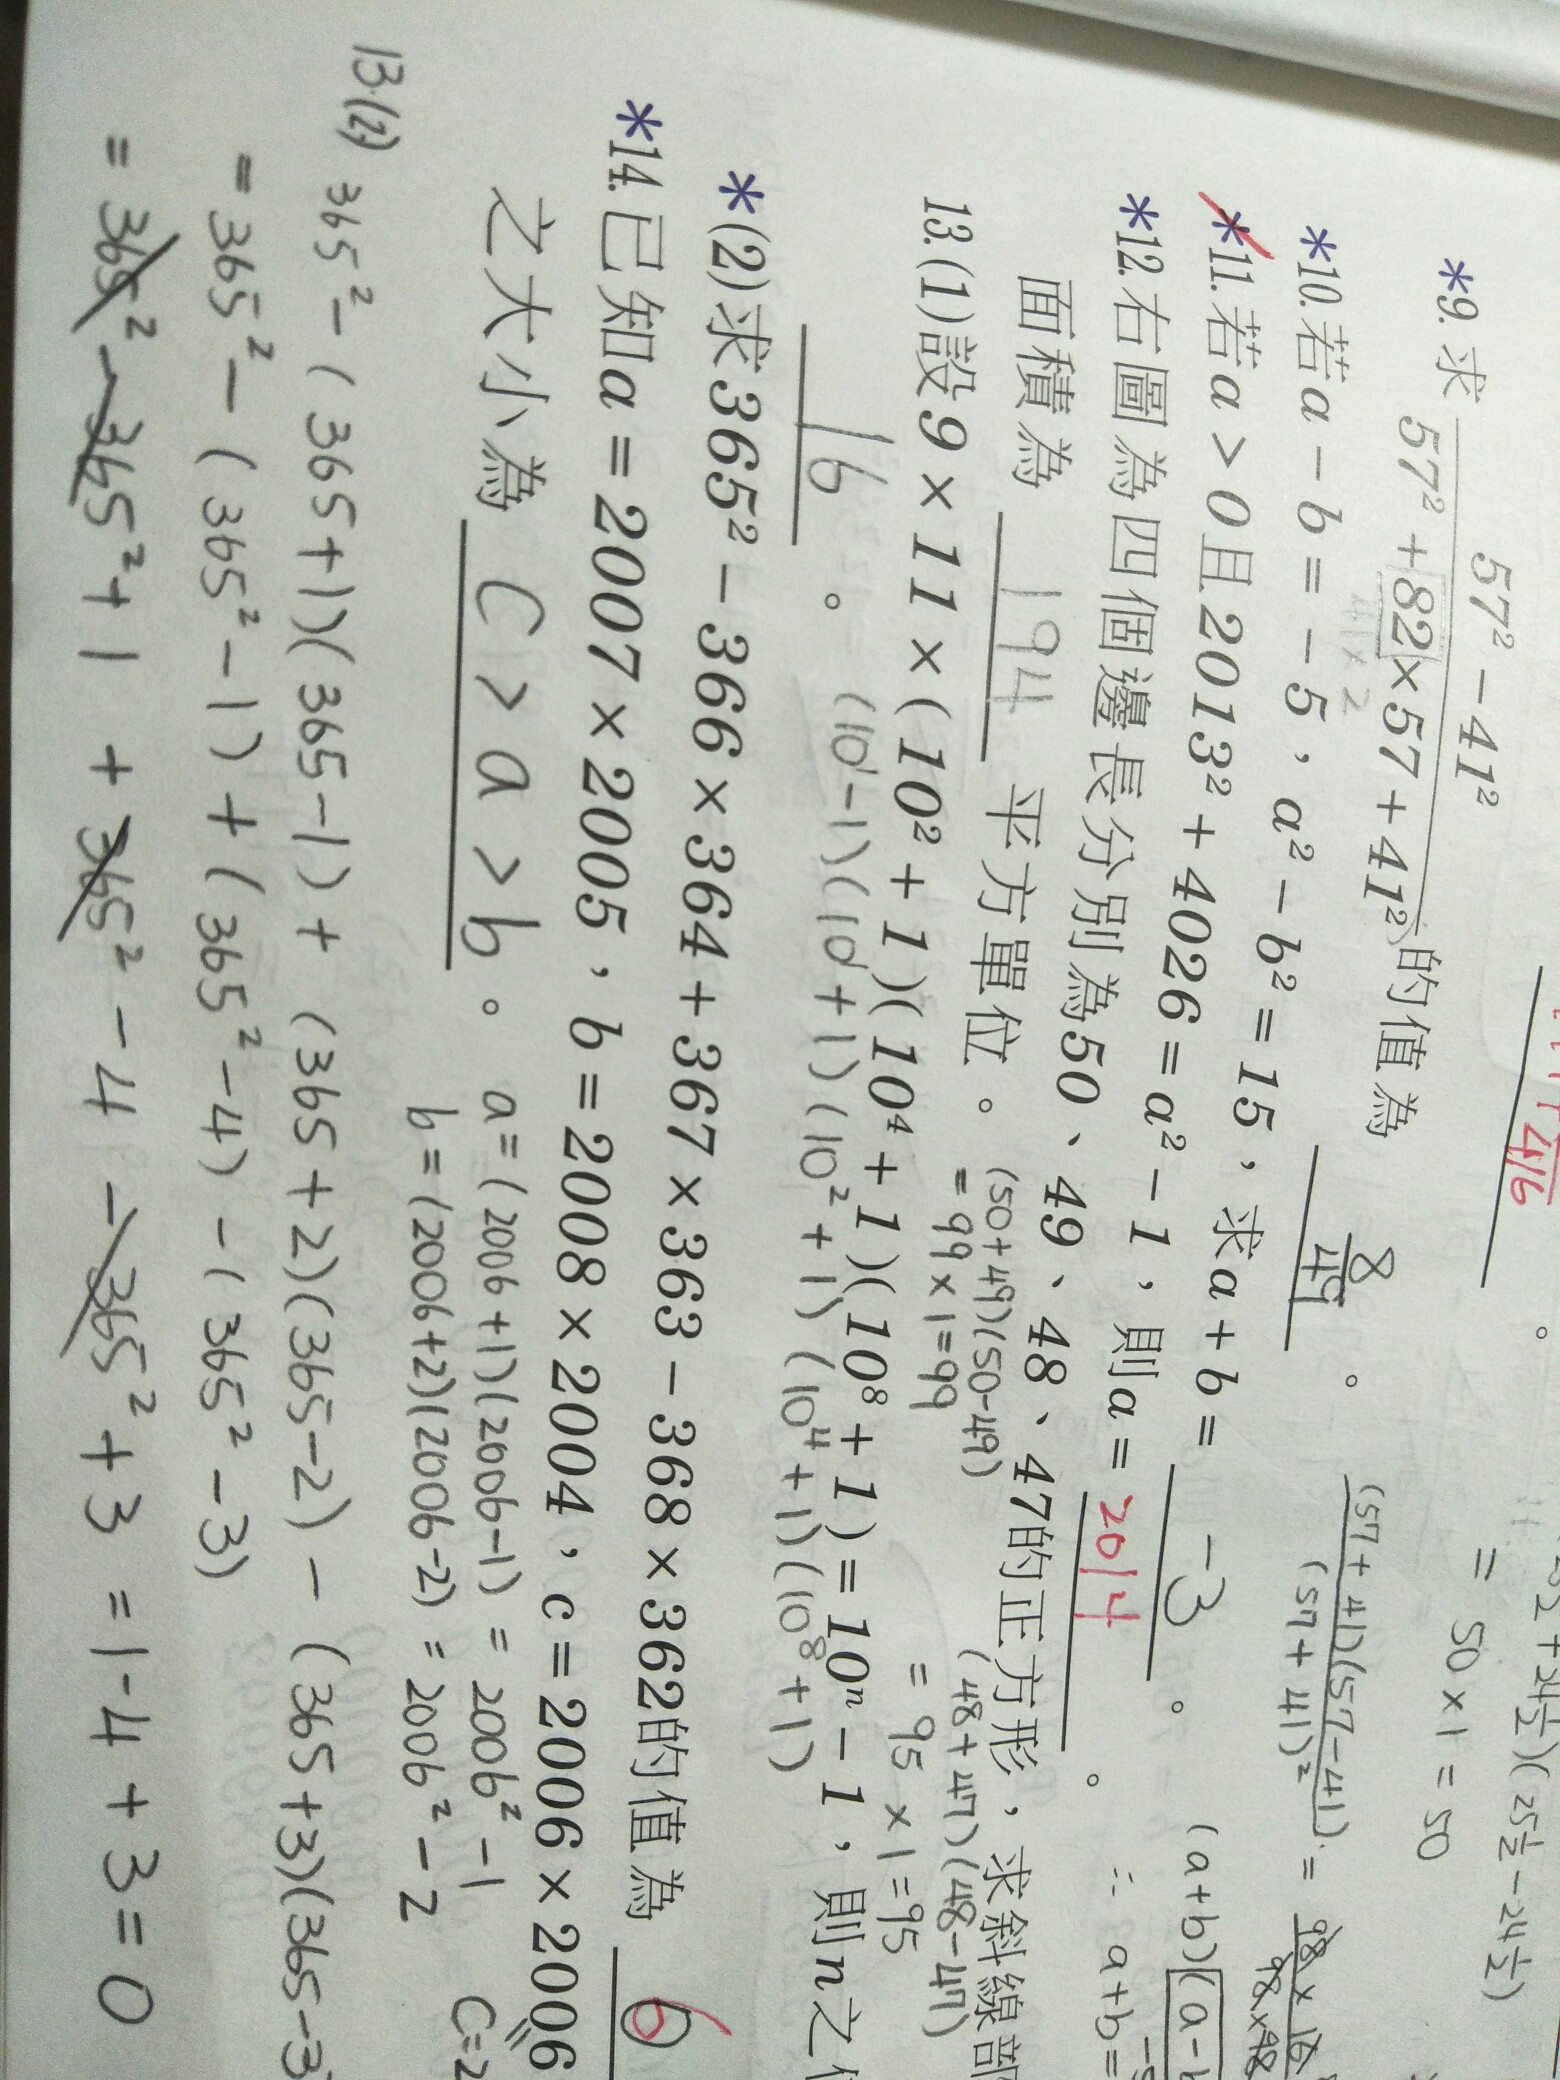 416
*9.求 57²－41² / 57²＋82×57＋41² 的值為 8/49 。
41×2
= 50×1 = 50
(57+41)(57-41) / (57+41)² =
*10.若a－b＝－5，a²－b²＝15，求a＋b＝ -3 。
*11.若a＞0且2013²＋4026＝a²－1，則a＝ 2014 。
∴ a+b=
*12.右圖為四個邊長分別為50、49、48、47的正方形，求斜線部
面積為 194 平方單位。
(50+49)(50-49)
= 99×1=99
(48+47)(48-47)
= 95×1=95
13.(1)設9×11×(10²＋1)(10⁴＋1)(10⁸＋1)＝10ⁿ－1，則n之
16 。
(10¹-1)(10¹+1)(10²+1)(10⁴+1)(10⁸+1)
*(2)求365²－366×364＋367×363－368×362的值為 6
*14.已知a＝2007×2005，b＝2008×2004，c＝2006×2006
之大小為 C>a>b 。
a=(2006+1)(2006-1) = 2006²-1
b=(2006+2)(2006-2) = 2006²-2
C=2
13.(2) 365²-(365+1)(365-1)+(365+2)(365-2)-(365+3)(365-3
= 365²-(365²-1)+(365²-4)-(365²-3)
= 365²-365²+1+365²-4-365²+3 =1-4+3=0